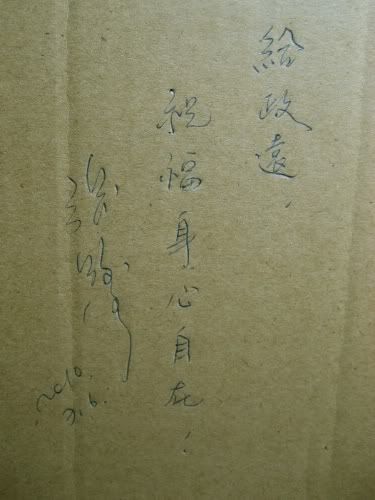 給政遠，
祝福身心自在！
2010.